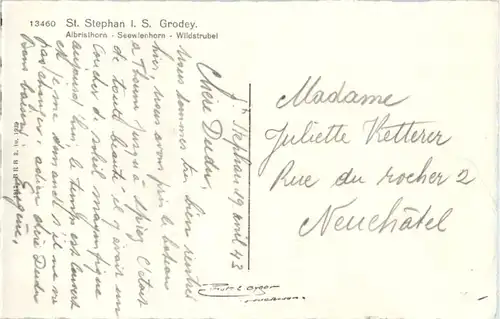 13460 St. Stephan I. S. Grodey.
Albristhorn - Seewlenhorn - Wildstrubel
St Stephan 19 avril 43
Chère Dudu,
Nous sommes bien rentrés
hier, nous avons pris le bateau
à Thoune jusqu'à Spiez. C'était
de toute beauté il y avait un
coucher de soleil magnifique
aujourd'hui, le temps est couvert
et je me demande s'il ne va
pas changer, adieu chère Dudu
Bons baisers
Eugène,
Madame
Juliette Ketterer
Rue du rocher 2
Neuchâtel